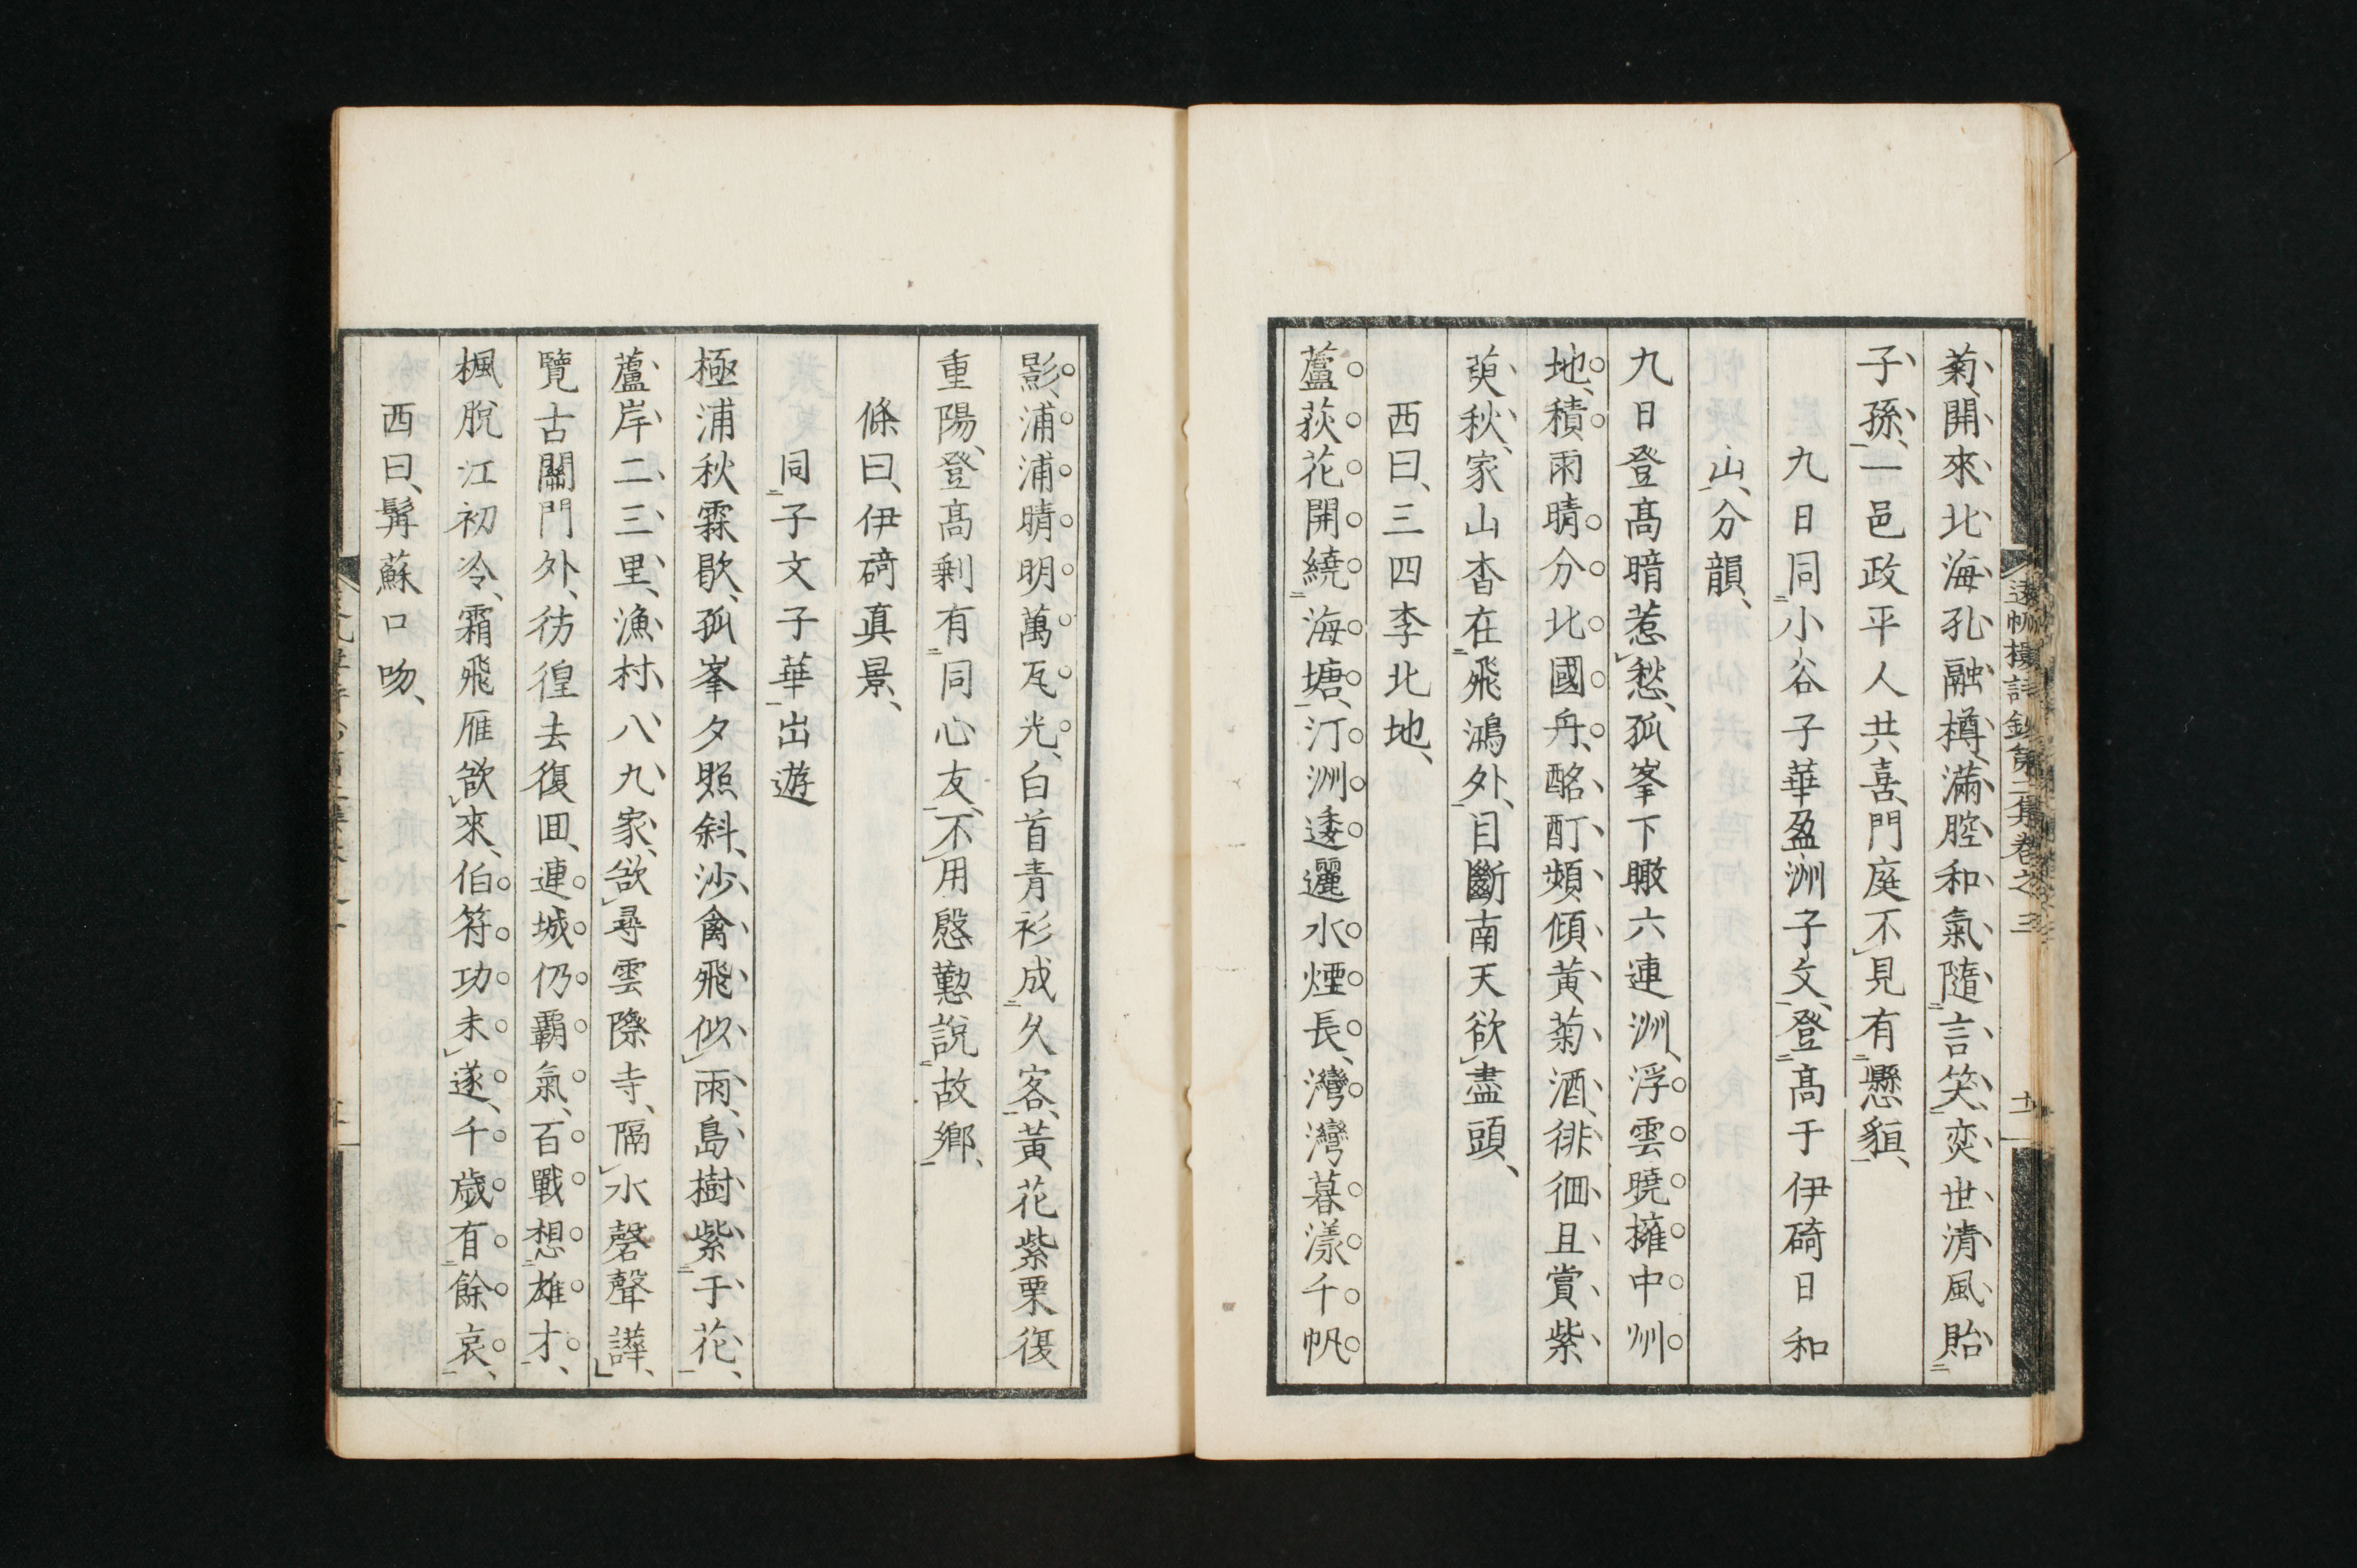 菊、開來北海孔融樽、滿腔和氣隨言笑、奕世清風貽
子孫、一邑政平人共喜、門庭不見有懸貆、
九日同小谷子華盈洲子文、登高于伊碕日和
山、分韻、
九日登高暗惹愁、孤峯下瞰六連洲、浮雲曉擁中州
地、積雨晴分北國舟、酩酊頻傾黃菊酒、徘徊且賞紫
萸秋、家山杳在飛鴻外、目斷南天欲盡頭、
西曰、三四李北地、
蘆荻花開繞海塘、汀洲逶邐水煙長、灣灣暮漾千帆
影、浦浦晴明萬瓦光、白首青衫成久客、黃花紫栗復
重陽、登高剩有同心友、不用慇懃說故鄉、
條曰、伊碕真景、
同子文子華出遊
極浦秋霖歇、孤峯夕照斜、沙禽飛似雨、島樹紫于花、
蘆岸二三里、漁村八九家、欲尋雲際寺、隔水磬聲譁、
覽古關門外、彷徨去復回、連城仍霸氣、百戰想雄才、
楓脫江初冷、霜飛雁欲來、伯符功未遂、千歲有餘哀、
西曰、髯蘇口吻、